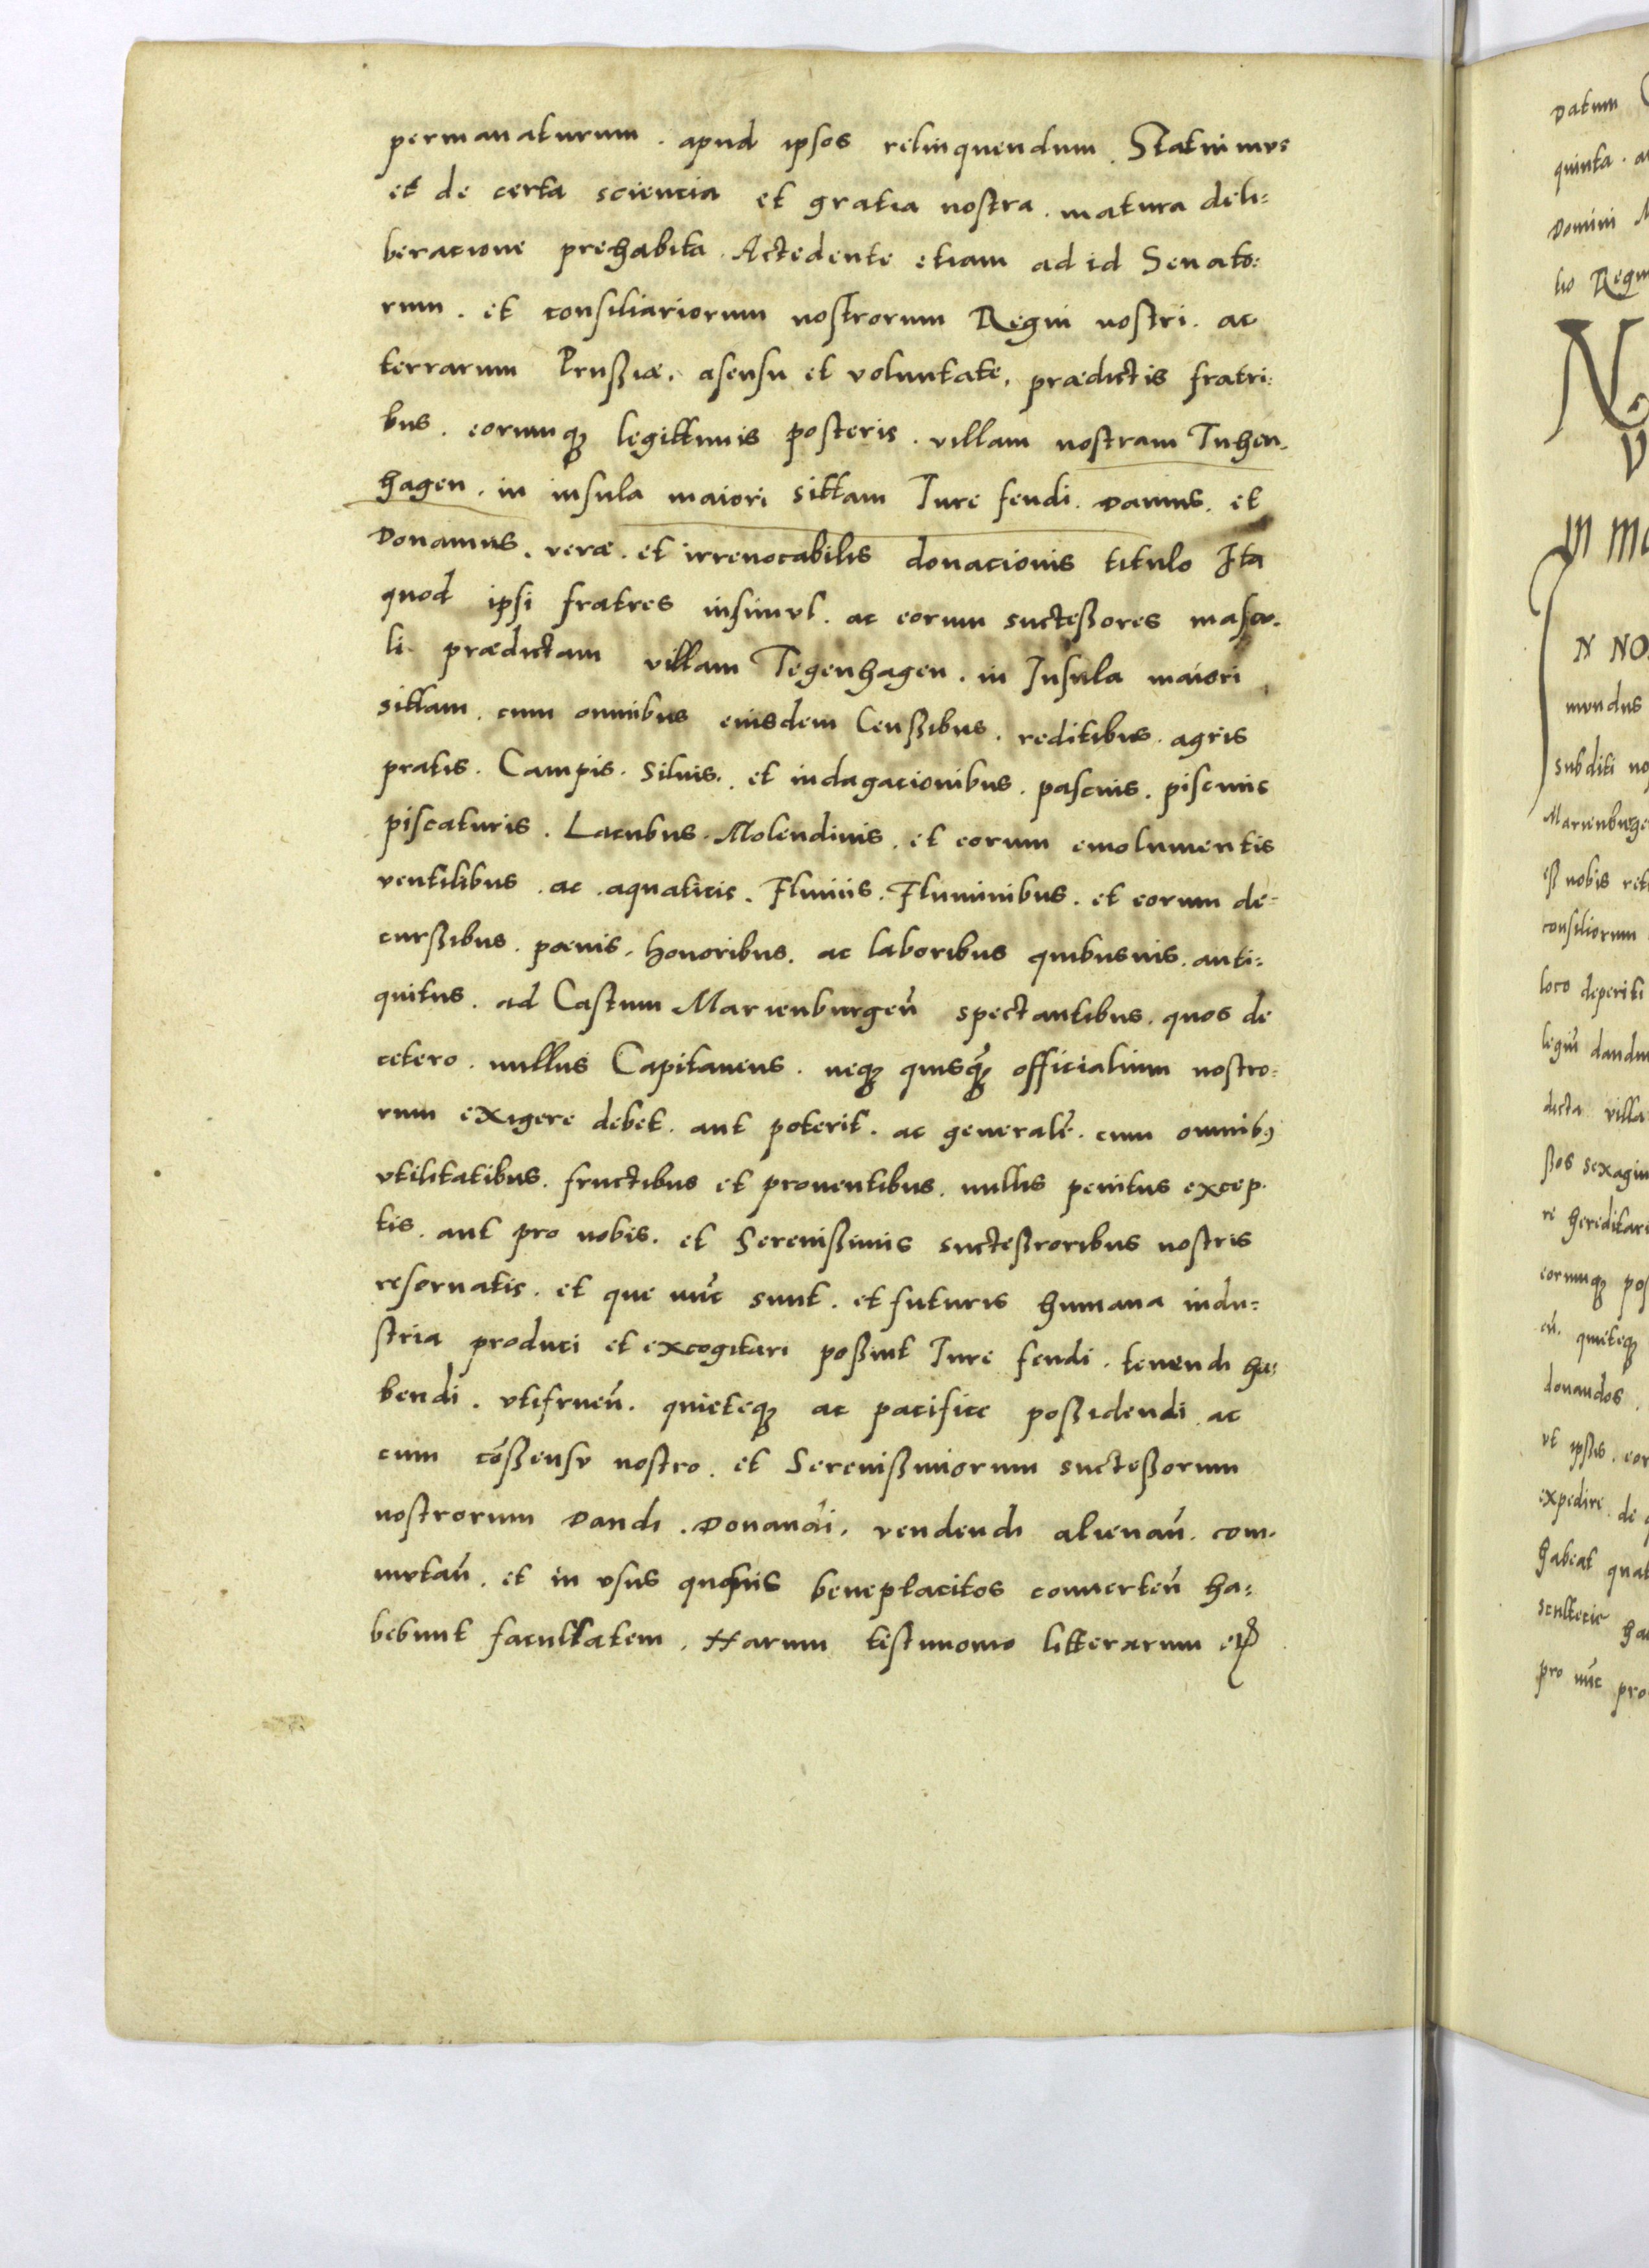 permanaturum . apud ipsos relinquendum . Statuimus
et de certa sciencia et gratia nostra . matura deli:
beracione prehabita . Actedente etiam ad id Senato:
rum . et consiliariorum nostrorum Regni nostri . ac
terrarum Prußiæ . asensu et voluntate . prædictis fratri:
bus . eorumqꝫ legittimis posteris . villam nostram Tuhen-
hagen . in insula maiori sittam Iure feudi . Damus . et
Donamus . veræ . et irreuocabilis donacionis titulo Ita
quod ipsi fratres insimul . ac eorum sucteßores mascu-
li . prædictam villam Tegenhagen . in Insula maiori
sittam . cum omnibus eiusdem Censßibus . reditibus . agris
pratis . Campis . Siluis . et indagacionibus . pascuis . piscinis
piscaturis . Lacubus . Molendinis . et eorum emolumentis
ventilibus . ac . aquaticis . Fluuiis . Fluminibus . et eorum de=
curßibus . pœnis . honoribus . ac laboribus quibusuis . anti:
quitus . ad Castum Marienburgeñ spectantibus . quos de
cetero . nullus Capitaneus . neqꝫ quisq̃ꝫ officialium nostro:
rum exigere debet . aut poterit . ac generale͂ . cum omnibꝰ
vtilitatibus . fructibus et prouentibus . nullis penitus excep-
tis . aut pro nobis . et Serenißimis sucteßroribus nostris
reseruatis . et que nũc sunt . et futuris humana indu=
stria produci et excogitari poßint Iure feudi . tenendi ha:
bendi . vtifrueñ . quieteqꝫ ac pacifice poßidendi . ac
cum cõßensu nostro . et Serenißimorum sucteßorum
nostrorum Dandi . Donandi . vendendi alienañ . com-
mutañ . et in vsus quosuis beneplacitos conuerteñ ha:
bebunt facultatem . Harum testimonio litterarum etꝭ
Datum
quinta .
Domini
lio Regni
N
IN
N NO
mundus
subditi no
Marienburge
eß nobis
consiliorum
loco deperiti
dandu
dicta villa
ßos sexagin
re hereditar
eorumqꝫ pos
eñ . quieteqꝫ
donandos .
vt ipsis . eor
expedire de
habeat
scultecie ha
pro nũc pro